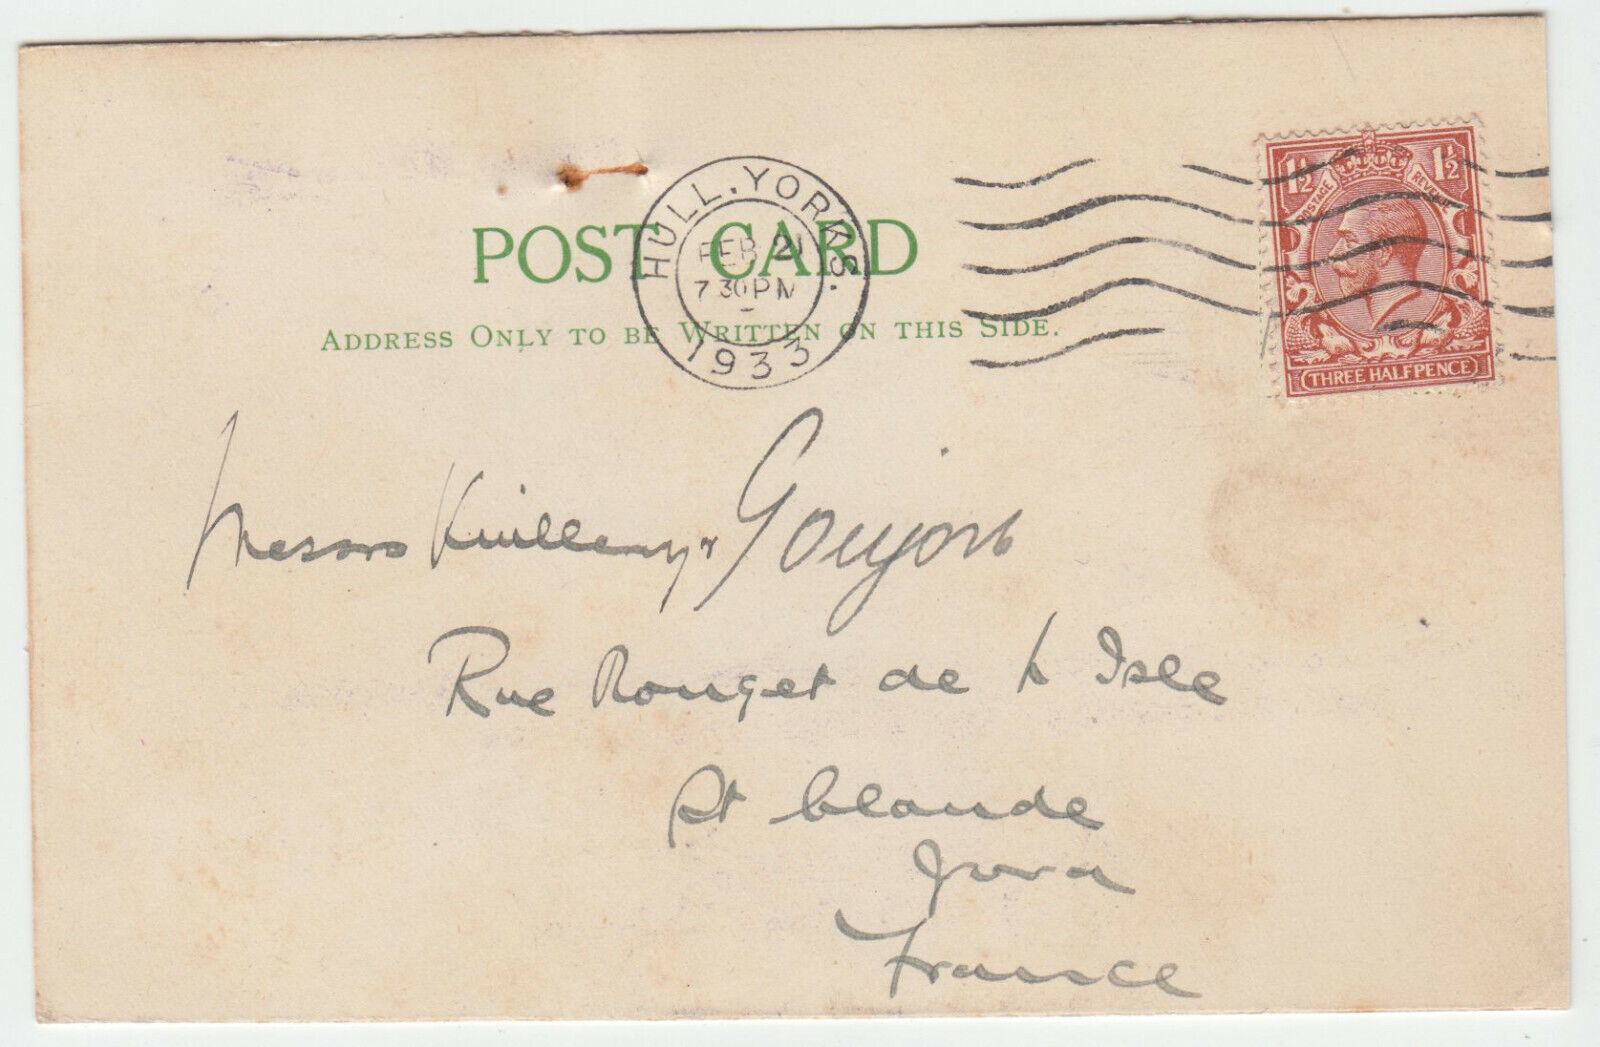 HULL. YORKS.
FEB 21
7 30 PM
1933
1½ 1½
POSTAGE REVENUE
THREE HALFPENCE
POST CARD
ADDRESS ONLY TO BE WRITTEN ON THIS SIDE.
Messrs & Goujon
Rue Rouget de Isle
St Claude
Jura
France